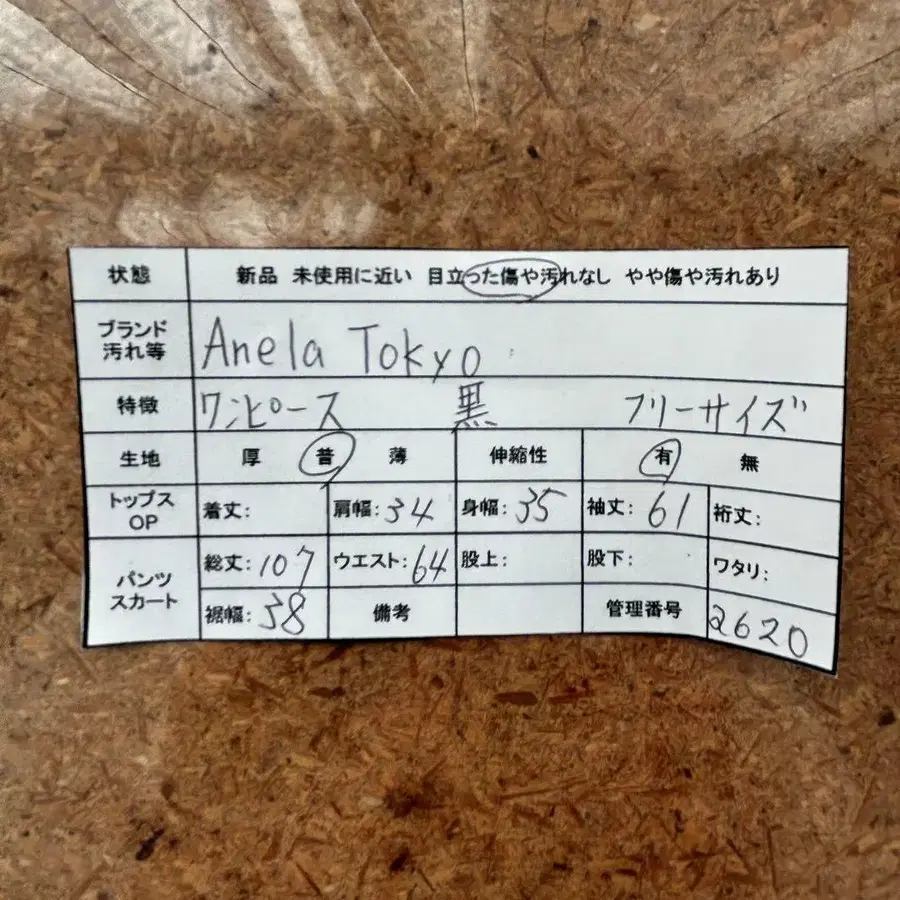 状態 新品 未使用に近い 目立った傷や汚れなし やや傷や汚れあり
ブランド 汚れ等 Anela Tokyo
特徴 ワンピース 黒 フリーサイズ
生地 厚 普 薄 伸縮性 有 無
トップス OP 着丈: 肩幅: 34 身幅: 35 袖丈: 61 裄丈:
パンツ スカート 総丈: 107 ウエスト: 64 股上: 股下: ワタリ:
裾幅: 38 備考 管理番号 2620